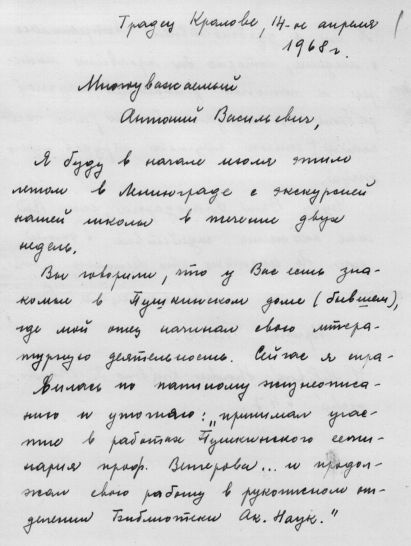 Градец Кралове, 14-го апреля
1968 г.
Многоуважаемый
Антоний Васильевич,
Я буду в начале июля этим
летом в Ленинграде с экскурсией
нашей школы в течение двух
недель.
Вы говорили, что у Вас есть зна-
комые в Пушкинском доме (бывшем),
где мой отец начинал свою литера-
турную деятельность. Сейчас я спра-
вилась по папиному жизнеописа-
нию и уточняю: „принимал учас-
тие в работах Пушкинского семи-
нария проф. Венгерова... и продол-
жал свою работу в рукописном от-
делении Библиотеки Ак. Наук."